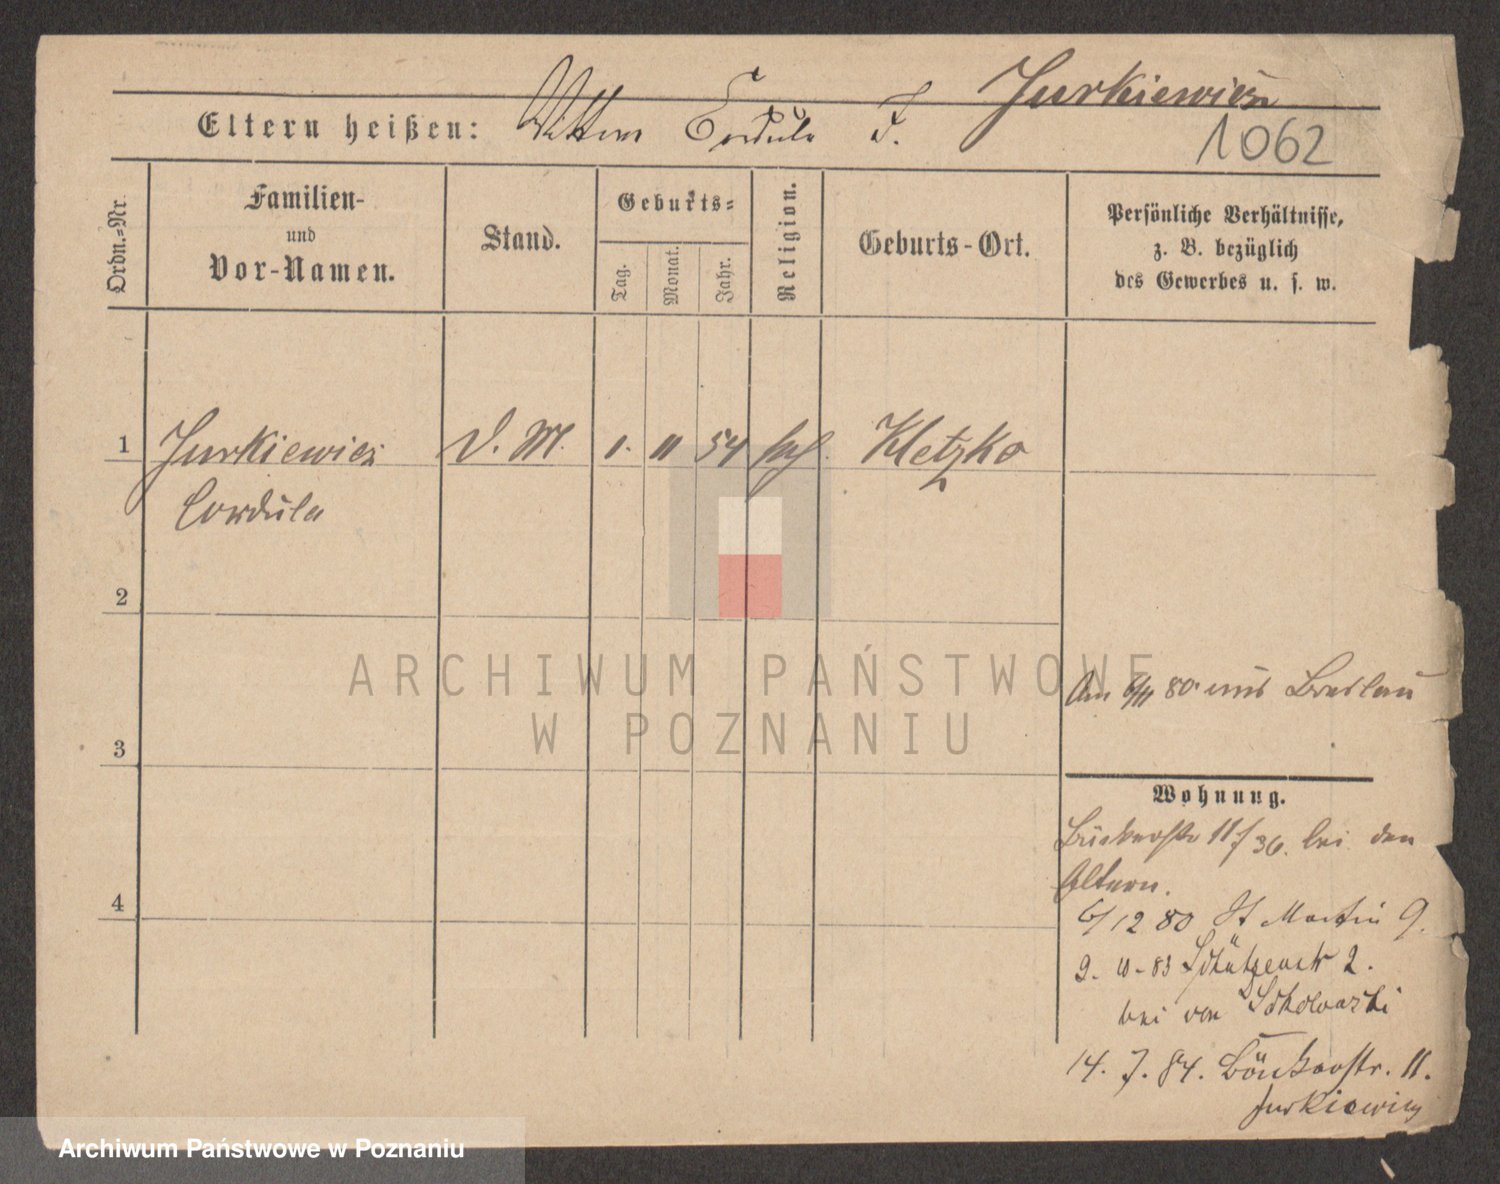 Jurkiewicz
Eltern heißen: Cordula F.
1062
Ordn.=Nr.
Familien-
und
Vor-Namen.
Stand.
Geburts=
Tag.
Monat.
Jahr.
Religion.
Geburts-Ort.
Persönliche Verhältnisse,
z. B. bezüglich
des Gewerbes u. s. w.
1 Jurkiewicz D. M. 1. 11 54 kath. Kletzko
Cordula
2
ARCHIWUM PAŃSTWOWE
W POZNANIU
Am 6/11 80 aus Breslau
3
Wohnung.
11/ 36. bei den
Eltern.
4
6/12 80 St Martin 9.
9. 10-83 Schützenstr 2.
bei von Sokolowski
14. 7. 84. Bäckerstr. 11.
Jurkiewicz
Archiwum Państwowe w Poznaniu